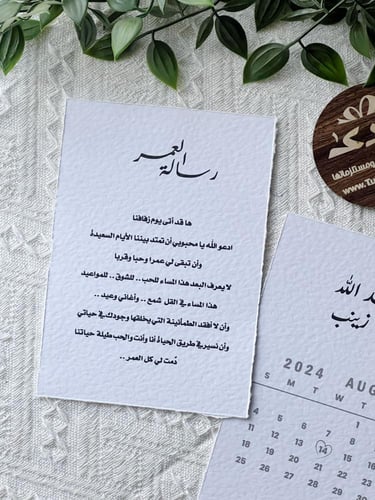 رسالة العمر
ها قد أتى يوم زفافنا
ادعو الله يا محبوبي أن تمتد بيننا الأيام السعيدة
وأن تبقى لي عمرا وحبا وقربا
لا يعرف البعد هذا المساء للحب .. للشوق .. للمواعيد
هذا المساء في القل شمع .. وأغاني وعيد ..
وأن لا أفقد الطمأنينة التي يخلقها وجودك في حياتي
وأن نسير في طريق الحياة أنا وأنت والحب طيلة حياتنا
دمت لي كل العمر ..
الله
زينب
2024 AUG
S M T W T
1
4 5 6 7 8
11 12 13 14 15
18 19 20 21 22
25 26 27 28
ومستلزماتها
www.Tu